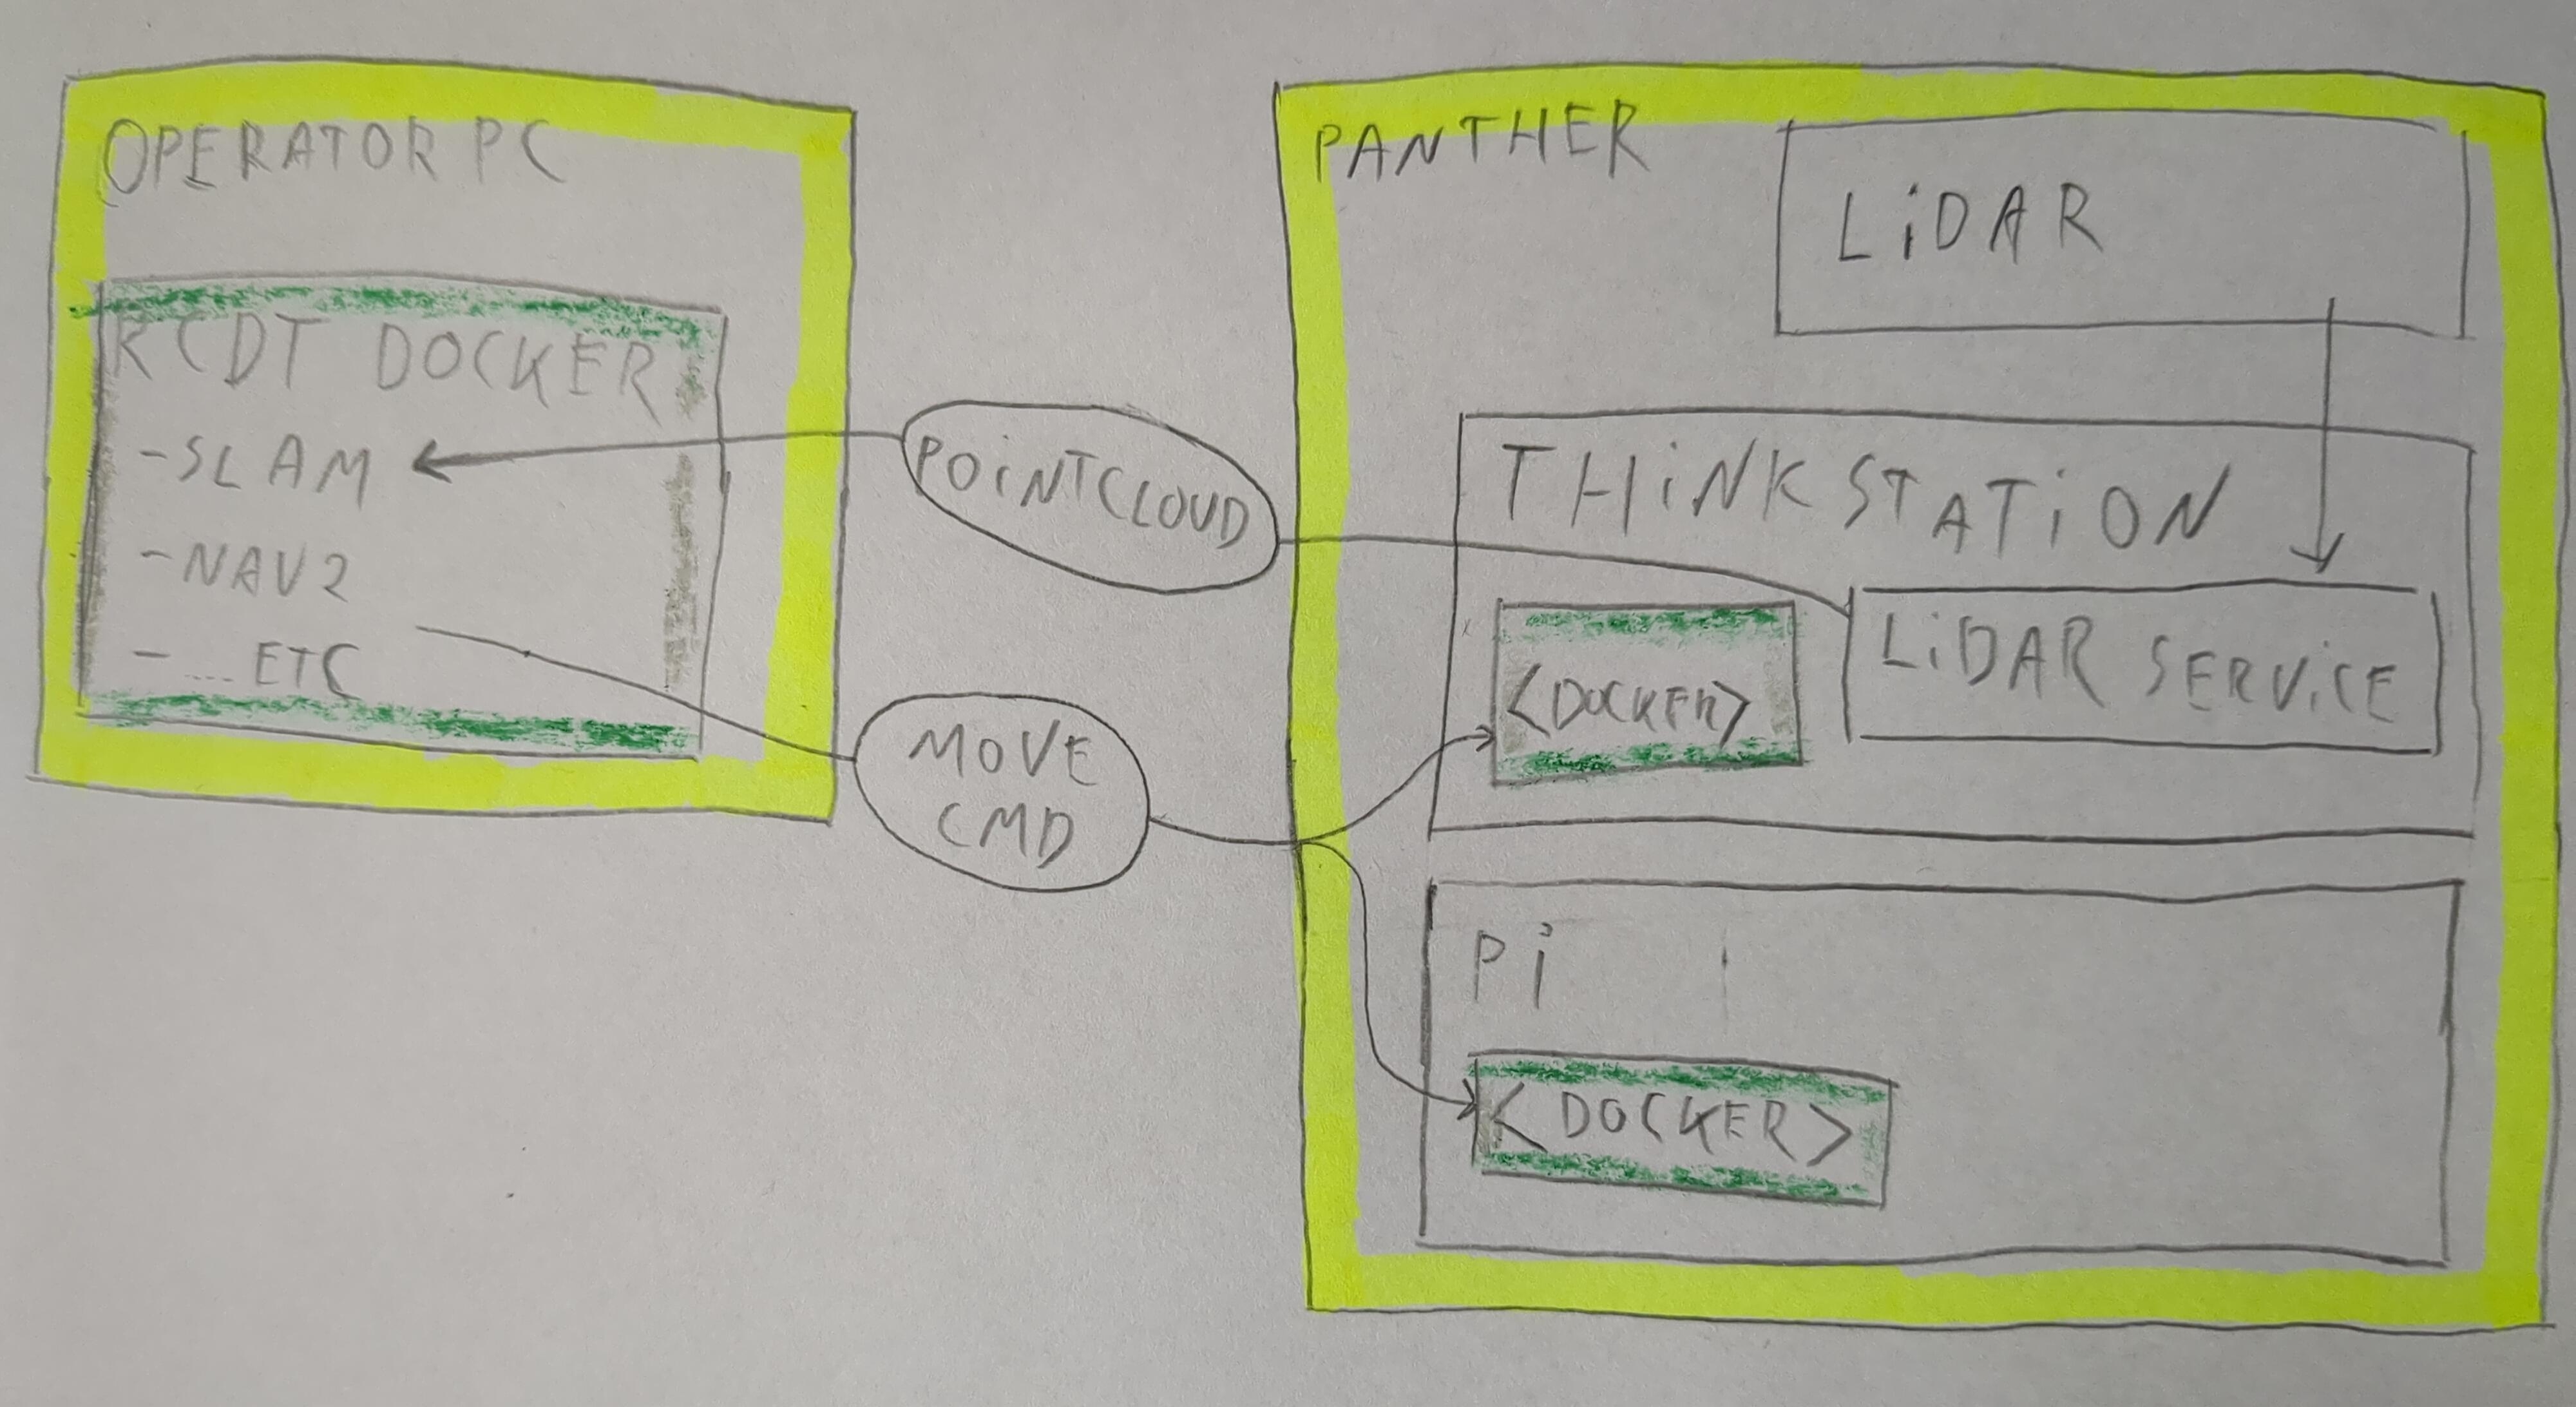 OPERATOR PC
RCDT DOCKER
-SLAM
-NAV2
-...ETC
POiNTCLOUD
MOVE
CMD
PANTHER
LiDAR
THiNKSTATiON
<DOCKER>
LiDAR SERViCE
Pi
<DOCKER>